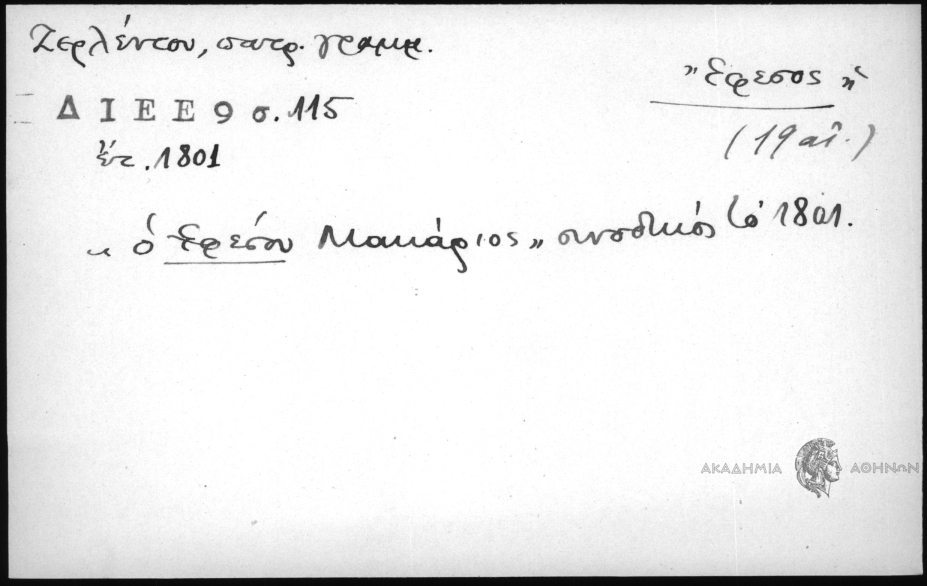 Ζερλέντου, πατρ. γραμμ.
"Έφεσος ἡ
Δ Ι Ε Ε 9 σ. 115
(19 αἰ.)
ἔτ. 1801
"ὁ Ἐφέσου Μακάριος" συνοδικός τό 1801.
ΑΚΑΔΗΜΙΑ ΑΘΗΝΩΝ